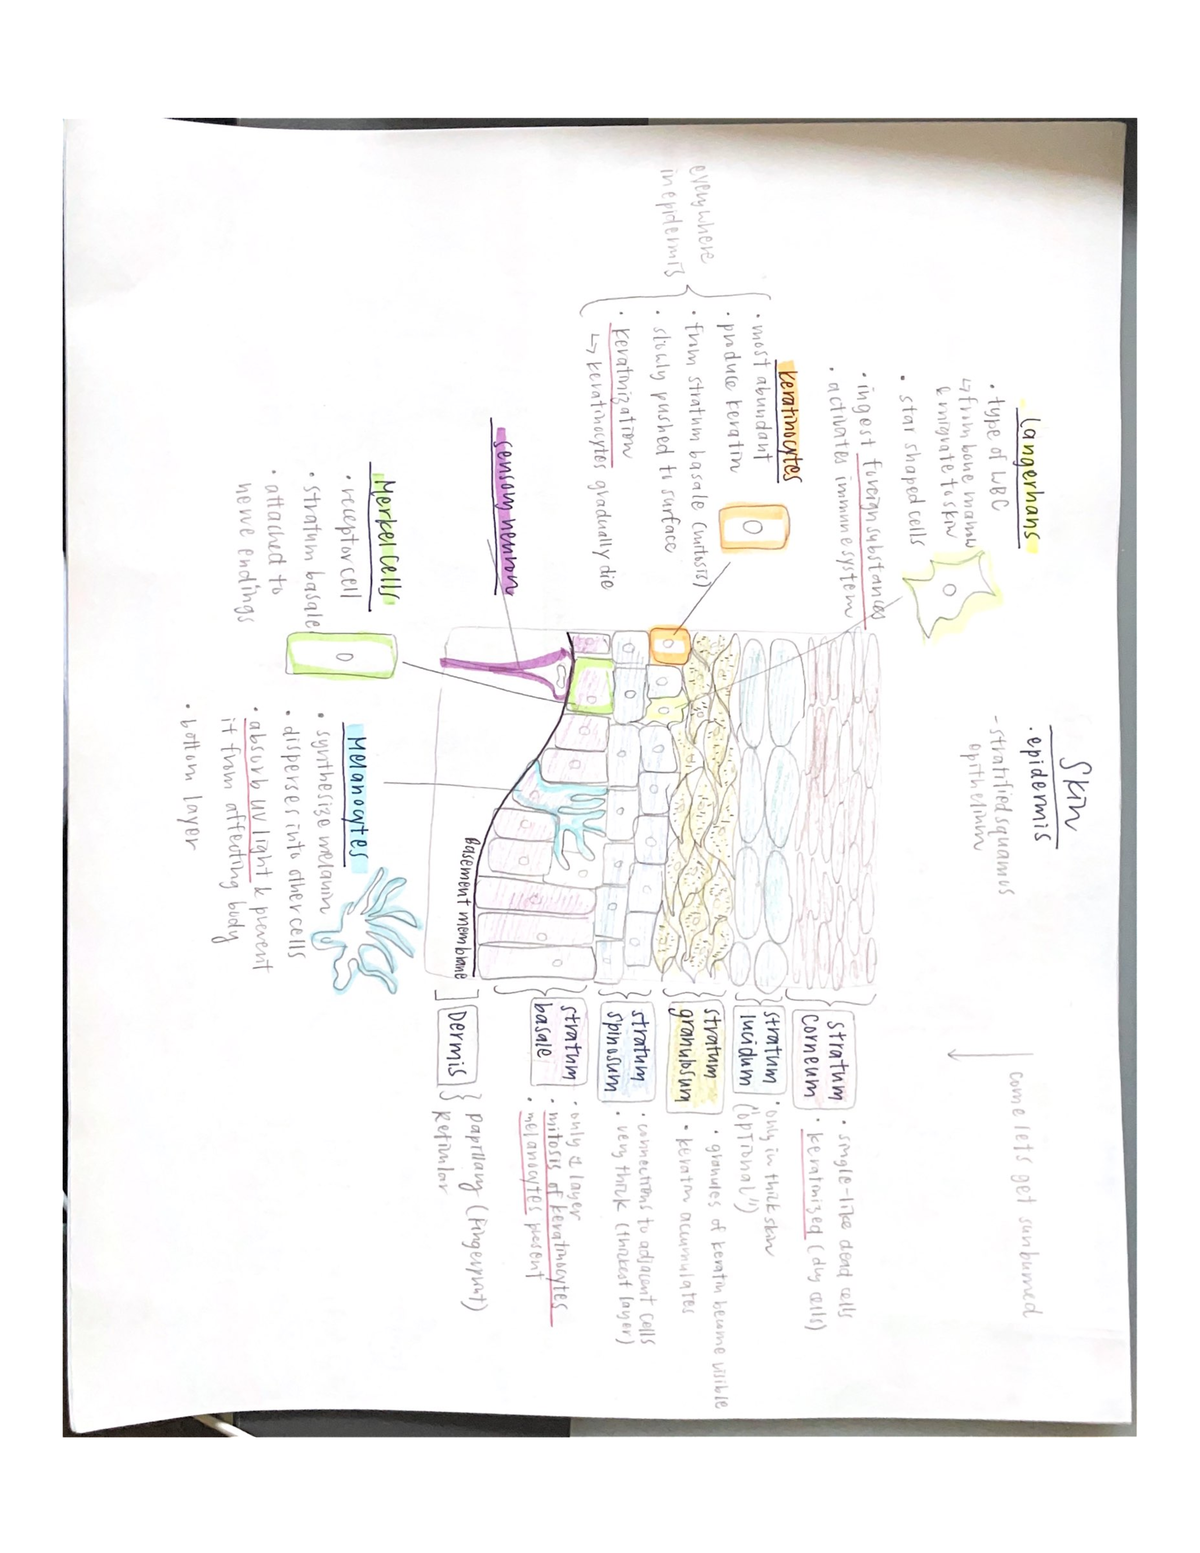 Skin
· epidermis
- stratified squamos
epithelium
come lets get sunburned
langerhans
· type of WBC
↳ from bone marrow
emigrate to skin
· star shaped cells
· ingest foreign substances
· activates immune system
keratinocytes
· most abundant
· produce keratin
· from stratum basale (mitosis)
· slowly pushed to surface
· keratinization
↳ keratinocytes gradually die
everywhere
in epidermis
sensory neuron
Merkel cells
· receptor cell
· stratum basale
· attached to
nerve endings
Melanocytes
· synthesize melanin
· disperses into other cells
· absorb uv light & prevent
it from affecting body
· bottom layer
Basement membrane
stratum
corneum
· single-like dead cells
· keratinized (dry cells)
stratum
lucidum
· only in thick skin
("optional")
stratum
granulosum
· granules of keratin become visible
· keratin accumulates
stratum
spinosum
· connections to adjacent cells
· very thick (thickest layer)
stratum
basale
· only 1 layer
· mitosis of keratinocytes
· melanocytes present
Dermis
papillary (fingerprint)
Reticular